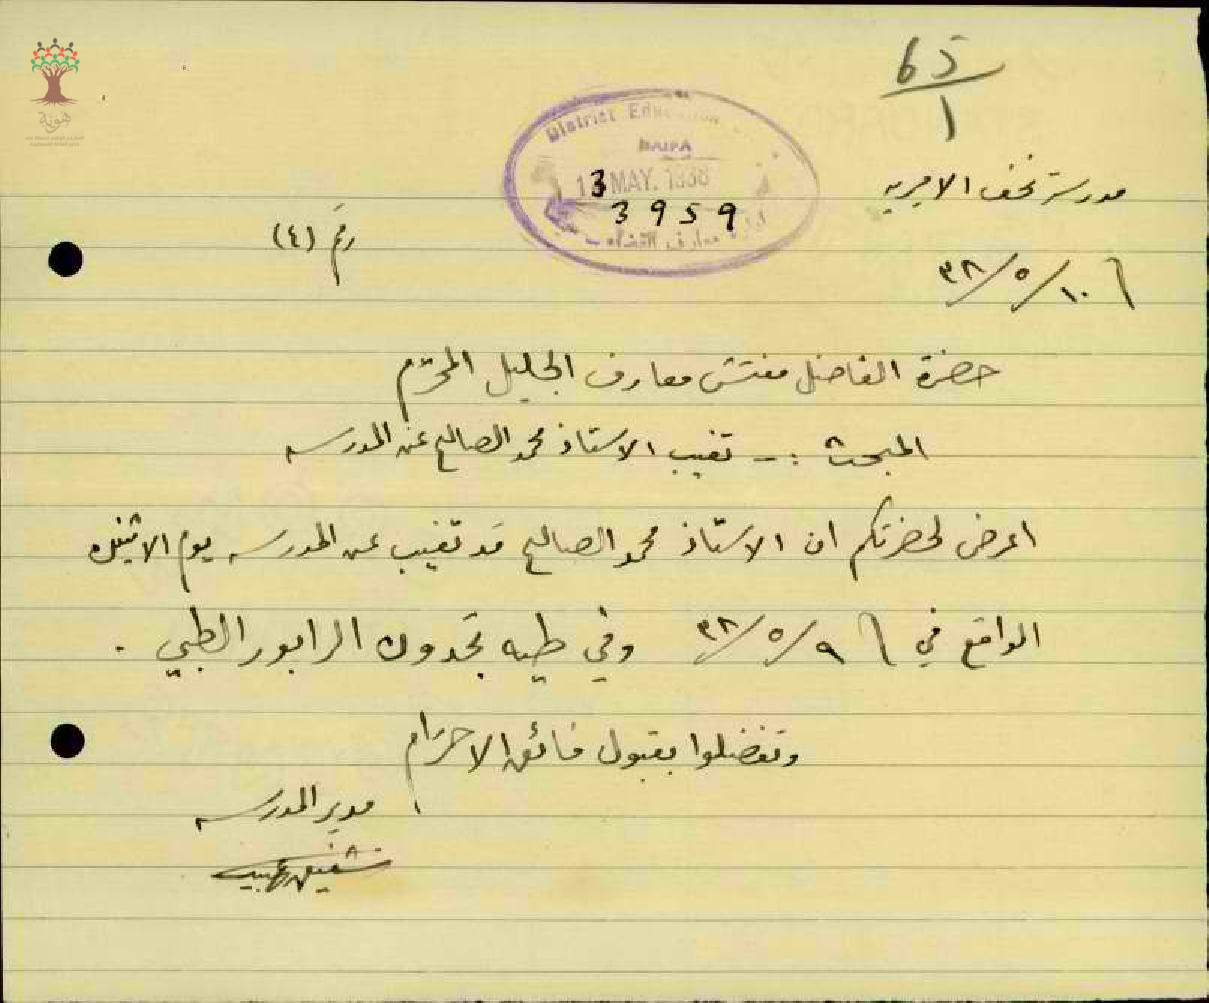 65
1
District Education
HAIFA
13 MAY. 1938
3959
معارف القضاء
مدرسة نحف الاميريه
رقم (٤)
١٠/٥/٣٨
حضرة الفاضل مفتش معارف الجليل المحترم
المبحث :- تغيب الاستاذ محمد الصالح عن المدرسه
اعرض لحضرتكم ان الاستاذ محمد الصالح قد تغيب عن المدرسه يوم الاثنين
الواقع في ٩/٥/٣٨ وفي طيه تجدون الرابور الطبي .
وتفضلوا بقبول فائق الاحترام
مدير المدرسه
شفيق
هوية